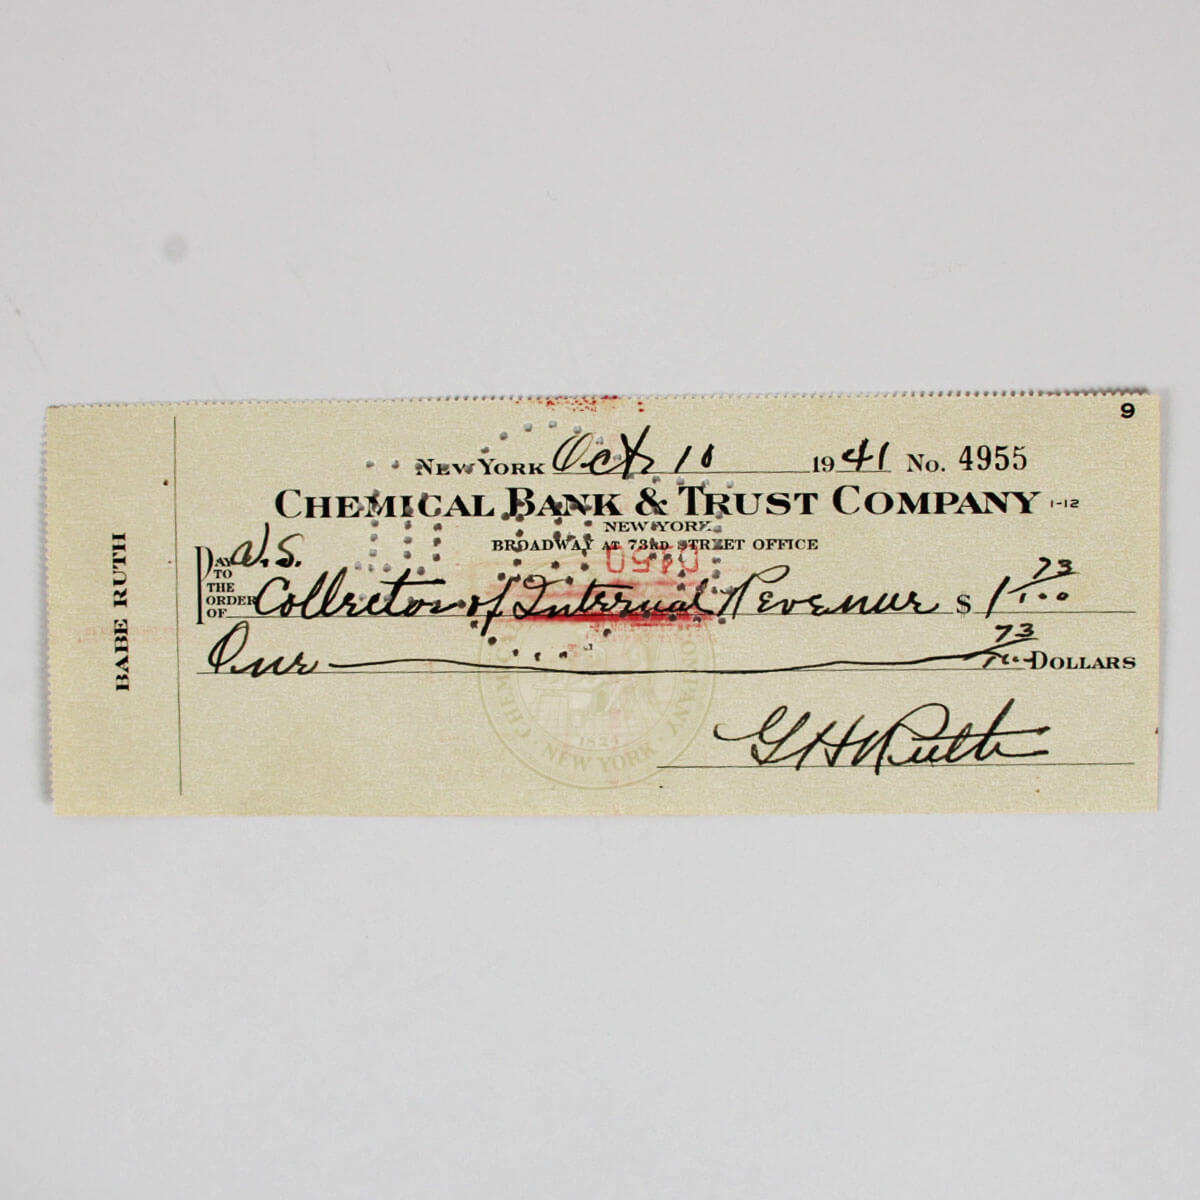 9
NEW YORK Oct 10 1941 No. 4955
CHEMICAL BANK & TRUST COMPANY 1-12
NEW YORK
BROADWAY AT 73RD STREET OFFICE
0450
PAY TO THE ORDER OF U.S. Collector of Internal Revenue $ 1 73/100
One 73/100 DOLLARS
G H Ruth
BABE RUTH
CHEMICAL COMPANY
1824
NEW YORK